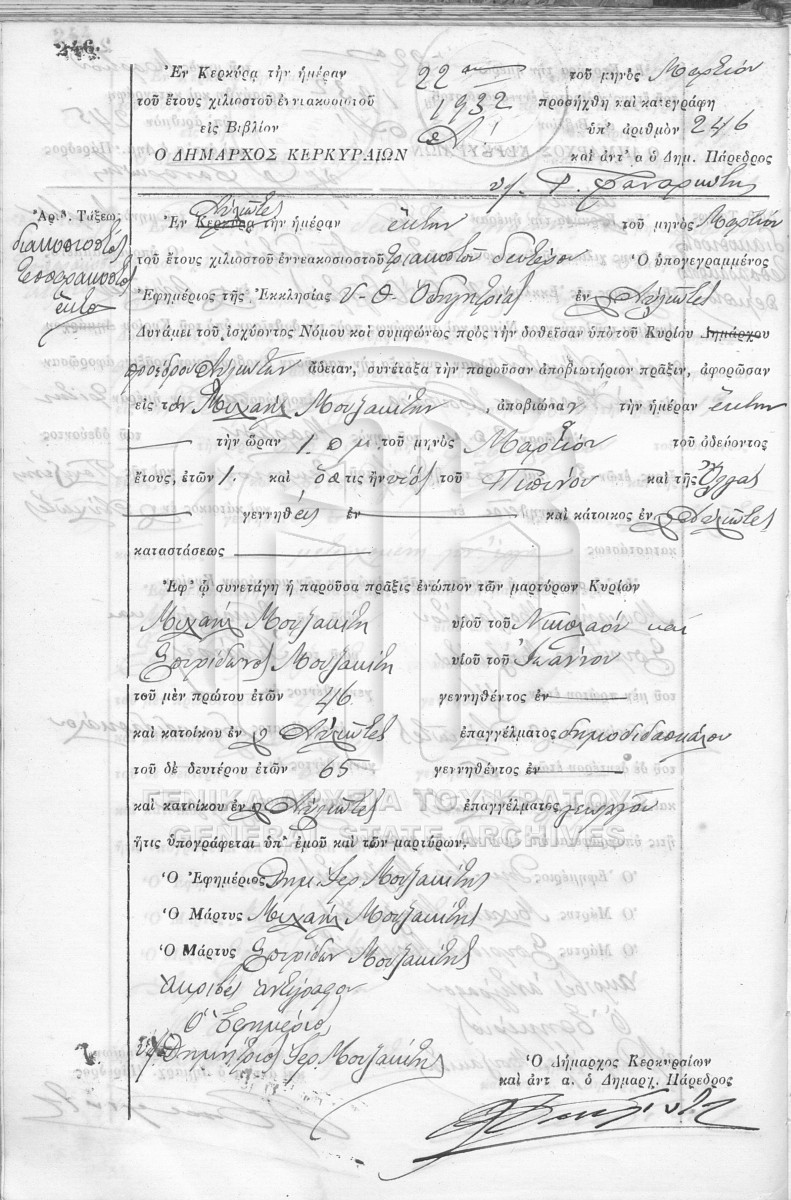 246.
Ἐν Κερκύρᾳ τὴν ἡμέραν 22αν τοῦ μηνὸς Μαρτίου
τοῦ ἔτους χιλιοστοῦ ἐννιακοσιοστοῦ 1932 προσήχθη καὶ κατεγράφη
εἰς Βιβλίον Α΄ ὑπ' ἀριθμὸν 246
Ὁ ΔΗΜΑΡΧΟΣ ΚΕΡΚΥΡΑΙΩΝ καὶ ἀντ' α ὁ Δημ. Πάρεδρος
Ἀριθ. Τάξεως
διακοσιοστὸς
τεσσαρακοστὸς
ἕκτος
Ἐν Κερκύρᾳ Αὐλιῶτες τὴν ἡμέραν ἕκτην τοῦ μηνὸς Μαρτίου
τοῦ ἔτους χιλιοστοῦ ἐννεακοσιοστοῦ τριακοστοῦ δευτέρου Ὁ ὑπογεγραμμένος
Ἐφημέριος τῆς Ἐκκλησίας Υ-Θ- Ὁδηγητρίας ἐν Αὐλιῶτες
Δυνάμει τοῦ ἰσχύοντος Νόμου καὶ συμφώνως πρὸς τὴν δοθεῖσαν ὑπὸ τοῦ Κυρίου Δημάρχου
προέδρου Αὐλιωτῶν ἄδειαν, συνέταξα τὴν παροῦσαν ἀποβιωτήριον πρᾶξιν, ἀφορῶσαν
εἰς τὸν Μιχαὴλ Μουζακίτην, ἀποβιώσαν τὴν ἡμέραν ἕκτην
τὴν ὥραν 1 π μ τοῦ μηνὸς Μαρτίου τοῦ ὁδεύοντος
ἔτους, ἐτῶν 1. καὶ ὅστις ἦν υἱὸς τοῦ Πιπίνου καὶ τῆς Ὄλγας
γεννηθεὶς ἐν καὶ κάτοικος ἐν Αὐλιῶτες
καταστάσεως
Ἐφ' ᾧ συνετάγη ἡ παροῦσα πρᾶξις ἐνώπιον τῶν μαρτύρων Κυρίων
Μιχαὴλ Μουζακίτη υἱοῦ τοῦ Νικολάου καὶ
Σπυρίδωνος Μουζακίτη υἱοῦ τοῦ Ἰωάννου
τοῦ μὲν πρώτου ἐτῶν 46 γεννηθέντος ἐν
καὶ κατοίκου ἐν Αὐλιῶτες ἐπαγγέλματος δημοδιδασκάλου
τοῦ δὲ δευτέρου ἐτῶν 65 γεννηθέντος ἐν
καὶ κατοίκου ἐν Αὐλιῶτες ἐπαγγέλματος γεωργοῦ
ΓΕΝΙΚΑ ΑΡΧΕΙΑ ΤΟΥ ΚΡΑΤΟΥΣ
GENERAL STATE ARCHIVES
ἥτις ὑπογράφεται ὑπ' ἐμοῦ καὶ τῶν μαρτύρων,
Ὁ Ἐφημέριος Δημ. Ἱερ. Μουζακίτης
Ὁ Μάρτυς Μιχαὴλ Μουζακίτης
Ὁ Μάρτυς Σπυρίδων Μουζακίτης
Ἀκριβὲς ἀντίγραφον
Ὁ Ἐφημέριος
Δημήτριος Ἱερ. Μουζακίτης
Ὁ Δήμαρχος Κερκυραίων
καὶ ἀντ α. ὁ Δημαρχ. Πάρεδρος